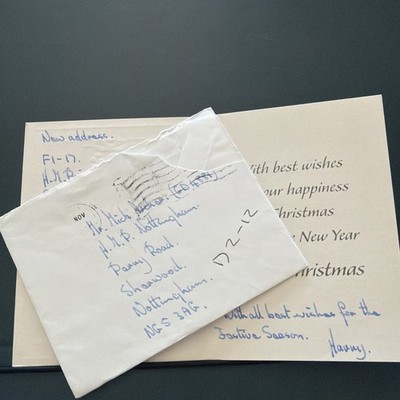 New address.
F1-17.
H.M.P.
With best wishes
our happiness
Christmas
New Year
Christmas
With all best wishes for the
Festive Season.
Harry.
NOV
Mr. Mick
H.M.P. Nottingham.
Perry Road.
Sherwood.
Nottingham.
NG5 3AG.
D2-12